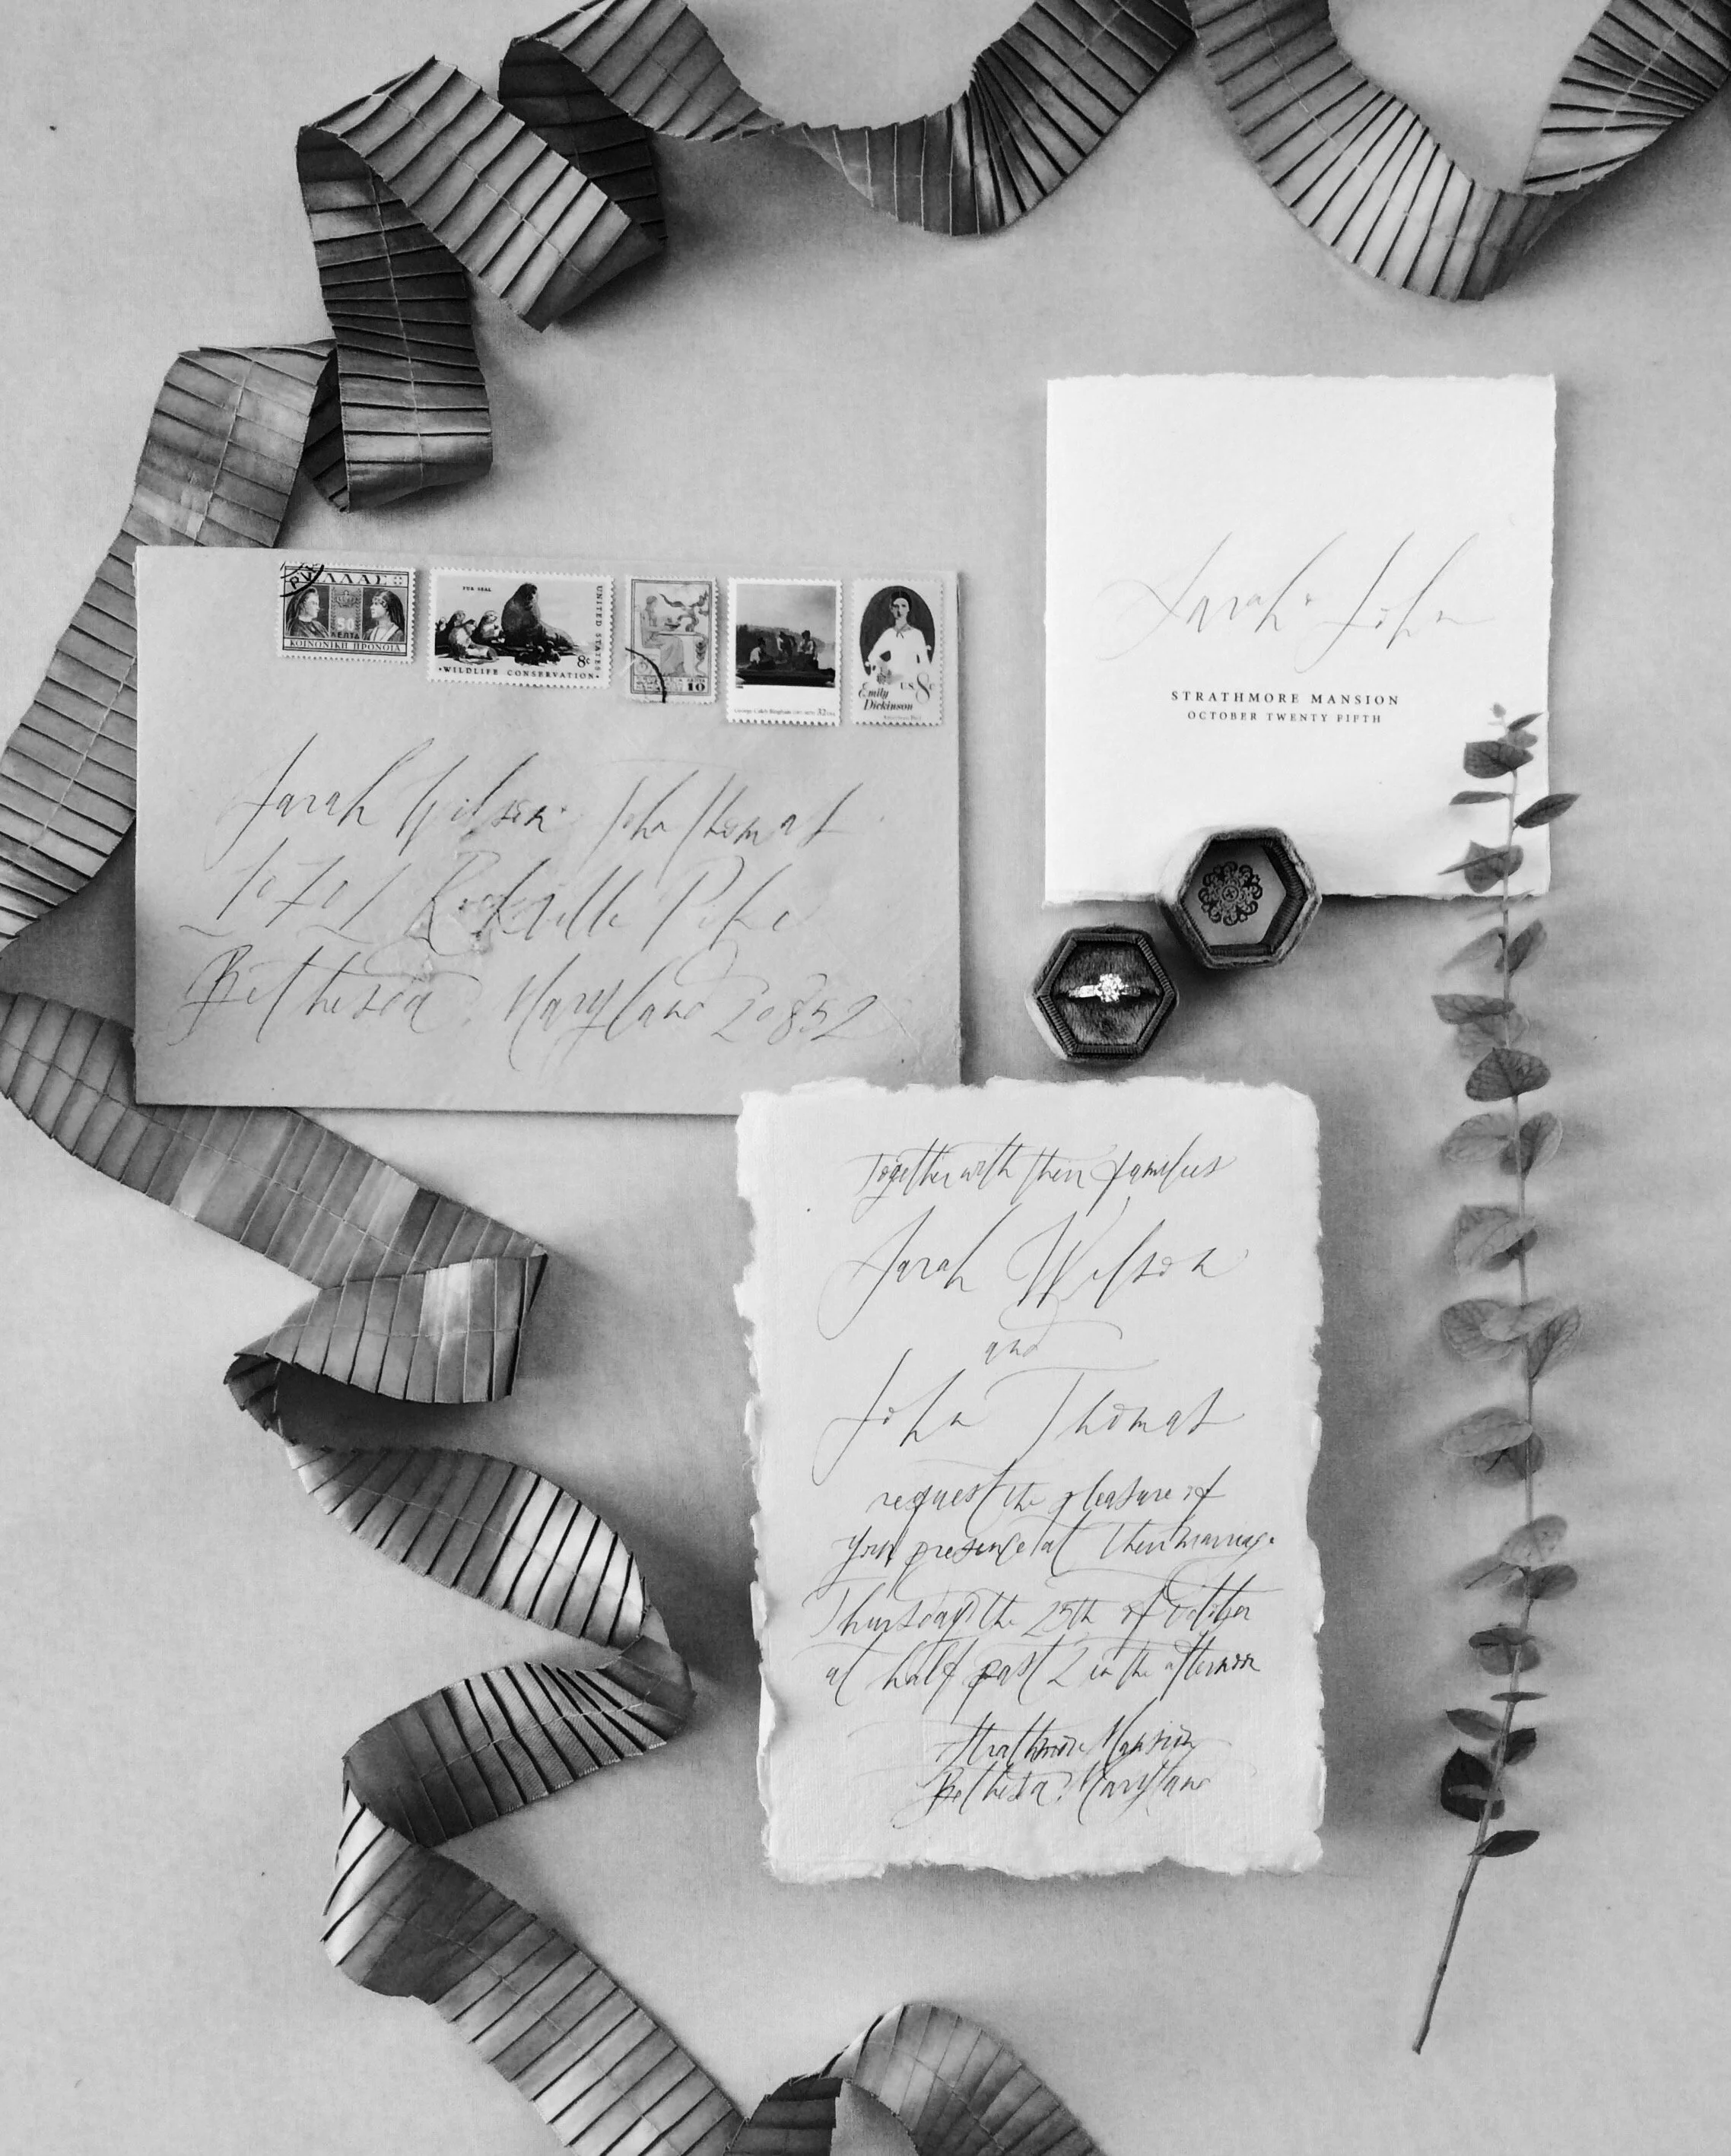 ΕΛΛΑΣ
50
ΛΕΠΤΑ
ΚΟΙΝΩΝΙΚΗ ΠΡΟΝΟΙΑ
FUR SEAL
UNITED STATES
8c
·WILDLIFE CONSERVATION·
10
George Caleb Bingham
32
Emily
Dickinson
US 8c
Sarah Wilson John Thomas
10701 Rockville Pike
Bethesda, Maryland 20852
Sarah John
STRATHMORE MANSION
OCTOBER TWENTY FIFTH
Together with their families
Sarah Wilson
and
John Thomas
request the pleasure of
your presence at their marriage
Thursday the 25th of October
at half past 2 in the afternoon
Strathmore Mansion
Bethesda, Maryland